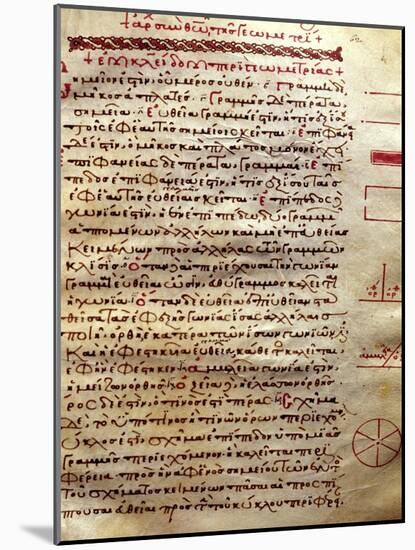 + ἀρ σὺν θῶ τῆς γεωμετρί +
+ εὐκλείδου περὶ γεωμετρίας +
σημεῖον ἐστὶν, οὗ μέρος οὐθέν. Γραμμὴ δὲ
μῆκος ἀπλατές. Γραμμῆς δὲ πέρατα,
σημεῖα. Εὐθεῖα γραμμή ἐστιν, ἥτις ἐξ ἴσου
τοῖς ἐφ' ἑαυτῆς σημείοις κεῖται. Ἐπιφάνεια
ἐστιν, ὃ μῆκος καὶ πλάτος μόνον ἔχει
Ἐπιφανείας δὲ πέρατα, γραμμαί. Ἐπί
πεδος ἐπιφάνειά ἐστιν, ἥτις ἐξ ἴσου ταῖς
ἐφ' ἑαυτῆς εὐθείαις κεῖται. Ἐπίπεδος
γωνία ἐστὶν, ἡ ἐν ἐπιπέδῳ δύο γραμμῶν
ἁπτομένων ἀλλήλων καὶ μὴ ἐπ' εὐθείας
κειμένων πρὸς ἀλλήλας τῶν γραμμῶν
κλίσις. Ὅταν δὲ αἱ περιέχουσαι τὴν γωνίαν
γραμμαὶ εὐθεῖαι ὦσιν, εὐθύγραμμος καλεῖται
ἡ γωνία. Ὅταν δὲ εὐθεῖα ἐπ' εὐθεῖαν στα
θεῖσα τὰς ἐφεξῆς γωνίας ἴσας ἀλλήλαις
ποιῇ, ὀρθὴ ἑκατέρα τῶν ἴσων γωνιῶν
καὶ ἡ ἐφεστηκυῖα εὐθεῖα, κάθετος καλεῖται,
ἐφ' ἣν ἐφέστηκεν. Ἀμβλεῖα γωνία ἐστὶν,
ἡ μείζων ὀρθῆς. Ὀξεῖα δὲ, ἡ ἐλάσσων ὀρθῆς.
ὅρος δέ ἐστιν, ὅ τινός ἐστι πέρας. Σχῆμα
δὲ, τὸ ὑπό τινος ἤ τινων ὅρων περιεχό
κύκλος ἐστὶν, σχῆμα ἐπίπεδον ὑπὸ μιᾶς
γραμμῆς περιεχόμενον. ἣ καλεῖται περι
φέρεια. πρὸς ἣν ἀφ' ἑνὸς σημείου τῶν ἐντὸς
τοῦ σχήματος κειμένων πᾶσαι αἱ προσ
πίπτουσαι εὐθεῖαι πρὸς τὴν τοῦ κύκλου περιφέρ